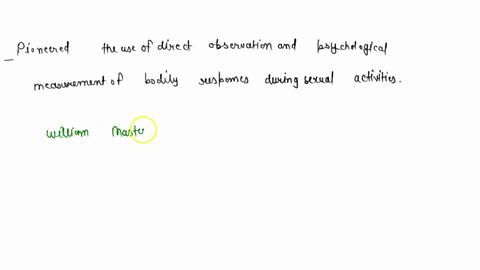 _Pioneered the use of direct observation and psychological
measurement of bodily responses during sexual activities.
William Maste